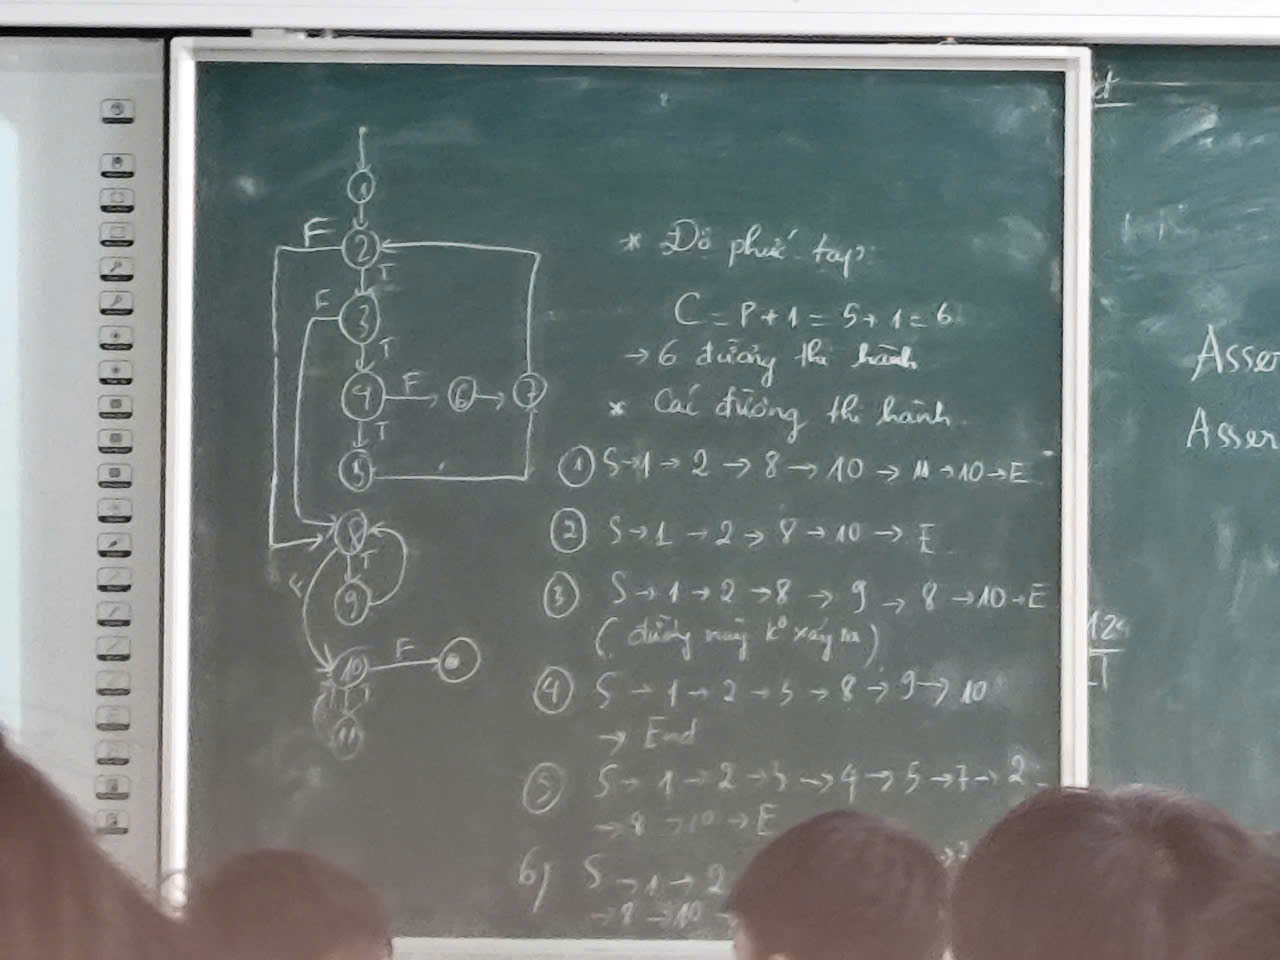 1
F
2
T
F
3
T
4
F
6
7
T
5
8
T
F
9
10
F
T
11
* Độ phức tạp:
C = P + 1 = 5 + 1 = 6
→ 6 đường thi hành
* Các đường thi hành
① S → 1 → 2 → 8 → 10 → 11 → 10 → E
② S → 1 → 2 → 8 → 10 → E
③ S → 1 → 2 → 8 → 9 → 8 → 10 → E
( đường này k° xảy ra )
④ S → 1 → 2 → 3 → 8 → 9 → 10
→ End
⑤ S → 1 → 2 → 3 → 4 → 5 → 7 → 2
→ 8 → 10 → E
6) S → 1 → 2
→ 8 → 10 →
Asser
Asser